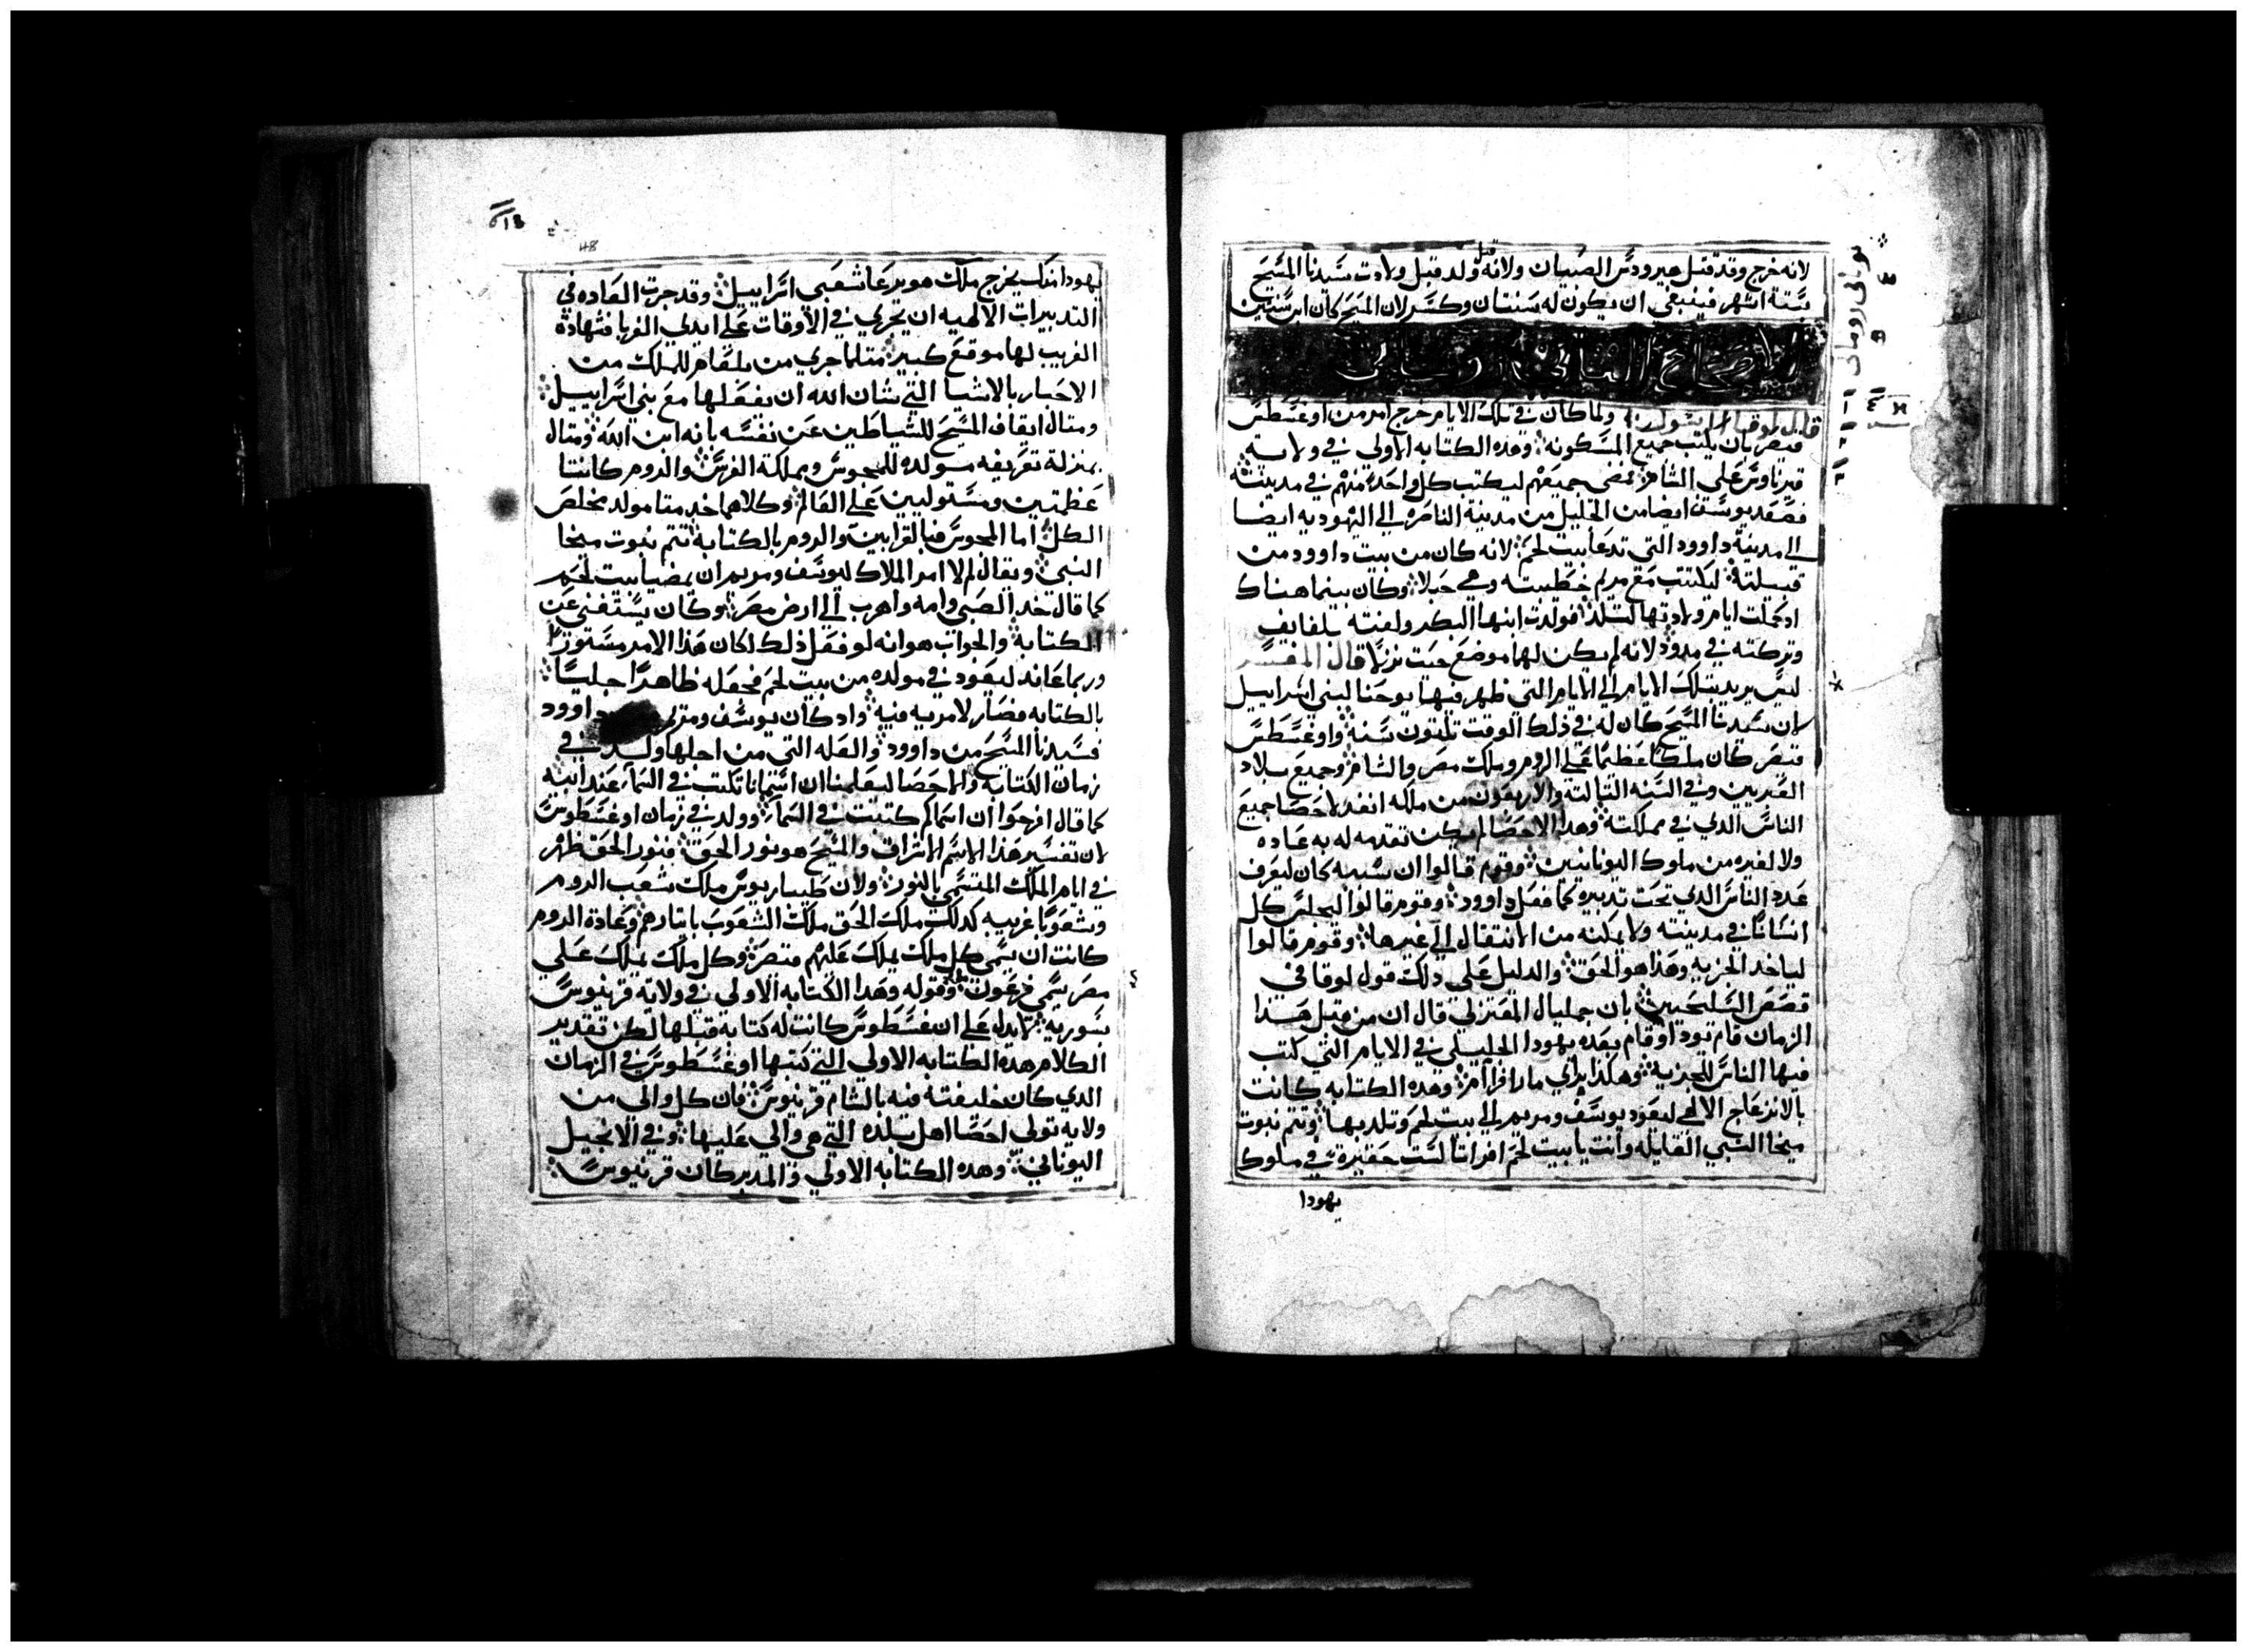 لانه خرج وقد قتل هيرودس الصبيان ولانه قبل ولد قبل ولادت سيدنا المسيح
بستة اشهر فينبغي ان يكون له سنتان وكسر لان المسيح كان ابن سنتين
الاصحاح الثاني
قال لوقا الرسول ولما كان في تلك الايام خرج امر من اوغسطس
قيصر بان يكتب جميع المسكونة وهده الكتابه الاولى في ولاية
قيرناوس على الشام فمضى جميعهم ليكتب كل واحد منهم في مدينته
فصعد يوسف ايضا من الجليل من مدينة الناصره الى اليهوديه ايضا
الى مدينة داوود التي تدعا بيت لحم لانه كان من بيت داوود من
قبيلته ليكتتب مع مريم خطيبته وهي حبلا وكان بينما هناك
اد كملت ايام ولادتها لتلد فولدت ابنها البكر ولفته بلفايف
وتركته في مدود لانه لم يكن لها موضع حيت نزلا قال المفسر
ليس يريد بتلك الايام الى الايام التي ظهر فيها يوحنا لبني اسراييل
لان سيدنا المسيح كان له في ذلك الوقت تلتون سنة واوغسطس
قيصر كان ملكا عظيما على الروم وملك مصر والشام وجميع بلاد
وفي السنه التالتة والاربعون من ملكه انفد لاحصا جميع
الناس الدي في مملكته وهدا الاحصا لم يكن تقدمه له به عاده
ولا لغيره من ملوك اليونانيين وقوم قالوا ان سببه كان ليعرف
عدد الناس الدي تحت تدبيره كما فعل داوود وقوم قالوا ليجلس كل
انسانا في مدينته ولا يمكنه من الانتقال الى غيرها وقوم قالوا
لياخد الجزيه وهذا هو الحق والدليل على دلك قول لوقا في
قصص السليحيين بان جمليال المعتزلي قال ان من قبل هدا
الزمان قام تودا وقام بعده يهودا الجليلي في الايام التي كتب
فيها الناس للجزية وهكدا يراي مارافرام وهده الكتابه كانت
بالانزعاج الالهي ليعود يوسف ومريم الى بيت لحم وتلد بها وتتم نبوت
ميخا النبي القايله وانت يا بيت لحم افراتا لست حقيرة في ملوك
يهودا
يهودا منك يخرج ملك هو يرعا شعبي اسراييل وقد جرت العاده في
التدبيرات الالهيه ان يجري في الاوقات على ايدي الغربا فشهادة
الغريب لها موقع كبير متلما جرى من بلعام للملك من
الاخبار بالاشيا التي شان الله ان يفعلها مع بني اسراييل
ومتال ايقاف المسيح للشياطين عن نفسه بانه ابن الله ومتال
بمنزلة تعريفه مولده للمجوس ومملكة الفرس والروم كانتا
عظمتين ومستوليين على العالم وكلاهما خدمتا مولد مخلص
الكل اما المجوس فبالقرابين والروم بالكتابة تتم نبوت ميخا
النبي ويقال لم لا امر الملاك ليوسف ومريم ان يمضيا بيت لحم
كما قال خد الصبي وامه واهرب الى ارض مصر وكان يستغني عن
الكتابة والجواب هو انه لو فعل ذلك لكان هدا الامر مستورا
وربما عاند ليعود في مولده من بيت لحم فجعله ظاهرا جليا
بالكتابه فصار لا مريه فيه واد كان يوسف ومريم داوود
فسيدنا المسيح من داوود والعله التي من اجلها ولد في
زمان الكتابة والاحصا ليعلمنا ان اسمانا تكتب في السما عند ابيه
كما قال افرحوا ان اسماكم كتبت في السما وولد في زمان اوغسطوس
لان تفسير هذا الاسم الاشراق والمسيح هو نور الحق فنور الحق ظهر
في ايام الملك المتسمي بالنور ولان طيباريوس ملك شعب الروم
وشعوبا غريبه كدلك ملك الحق ملك الشعوب باتارهم وعادة الروم
كانت ان يسمى كل ملك يملك عليهم قيصر وكل ملك يملك على
مصر يسمى فرعون وقوله وهدا الكتابه الاولى في ولاية قرينوس
بسوريه لا يدل على ان غسطوس كانت له كتابه قبلها لكن تقدير
الكلام هده الكتابه الاولى التي كتبها اوغسطوس في الزمان
الدي كان خليفته فيه بالشام قرينوس فان كل والي من
ولايه تولى احصا اهل بلده التي هي والي عليها وفي الانجيل
اليوناني وهده الكتابه الاولى والمدبر كان قرنيوس